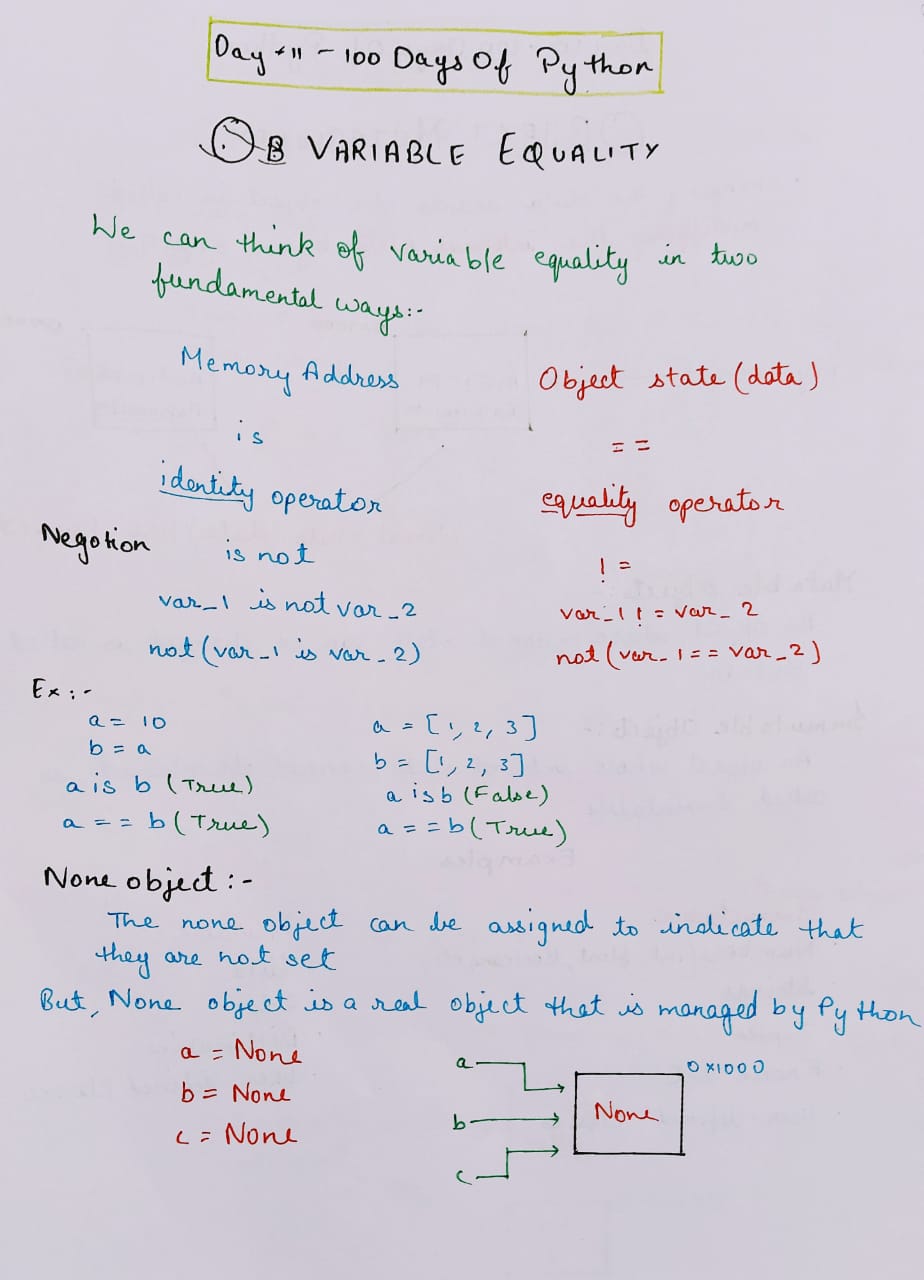 Day #11 - 100 Days Of Python
VARIABLE EQUALITY
We can think of variable equality in two
fundamental ways:-
Memory Address
Object state (data)
is
==
identity operator
equality operator
Negotion
is not
!=
var_1 is not var_2
var_1 != var_2
not (var_1 is var_2)
not (var_1 == var_2)
Ex:-
a = 10
b = a
a is b (True)
a == b (True)
a = [1, 2, 3]
b = [1, 2, 3]
a is b (False)
a == b (True)
None object :-
The none object can be assigned to indicate that
they are not set
But, None object is a real object that is managed by Python
a = None
b = None
c = None
a
b
c
None
0x1000